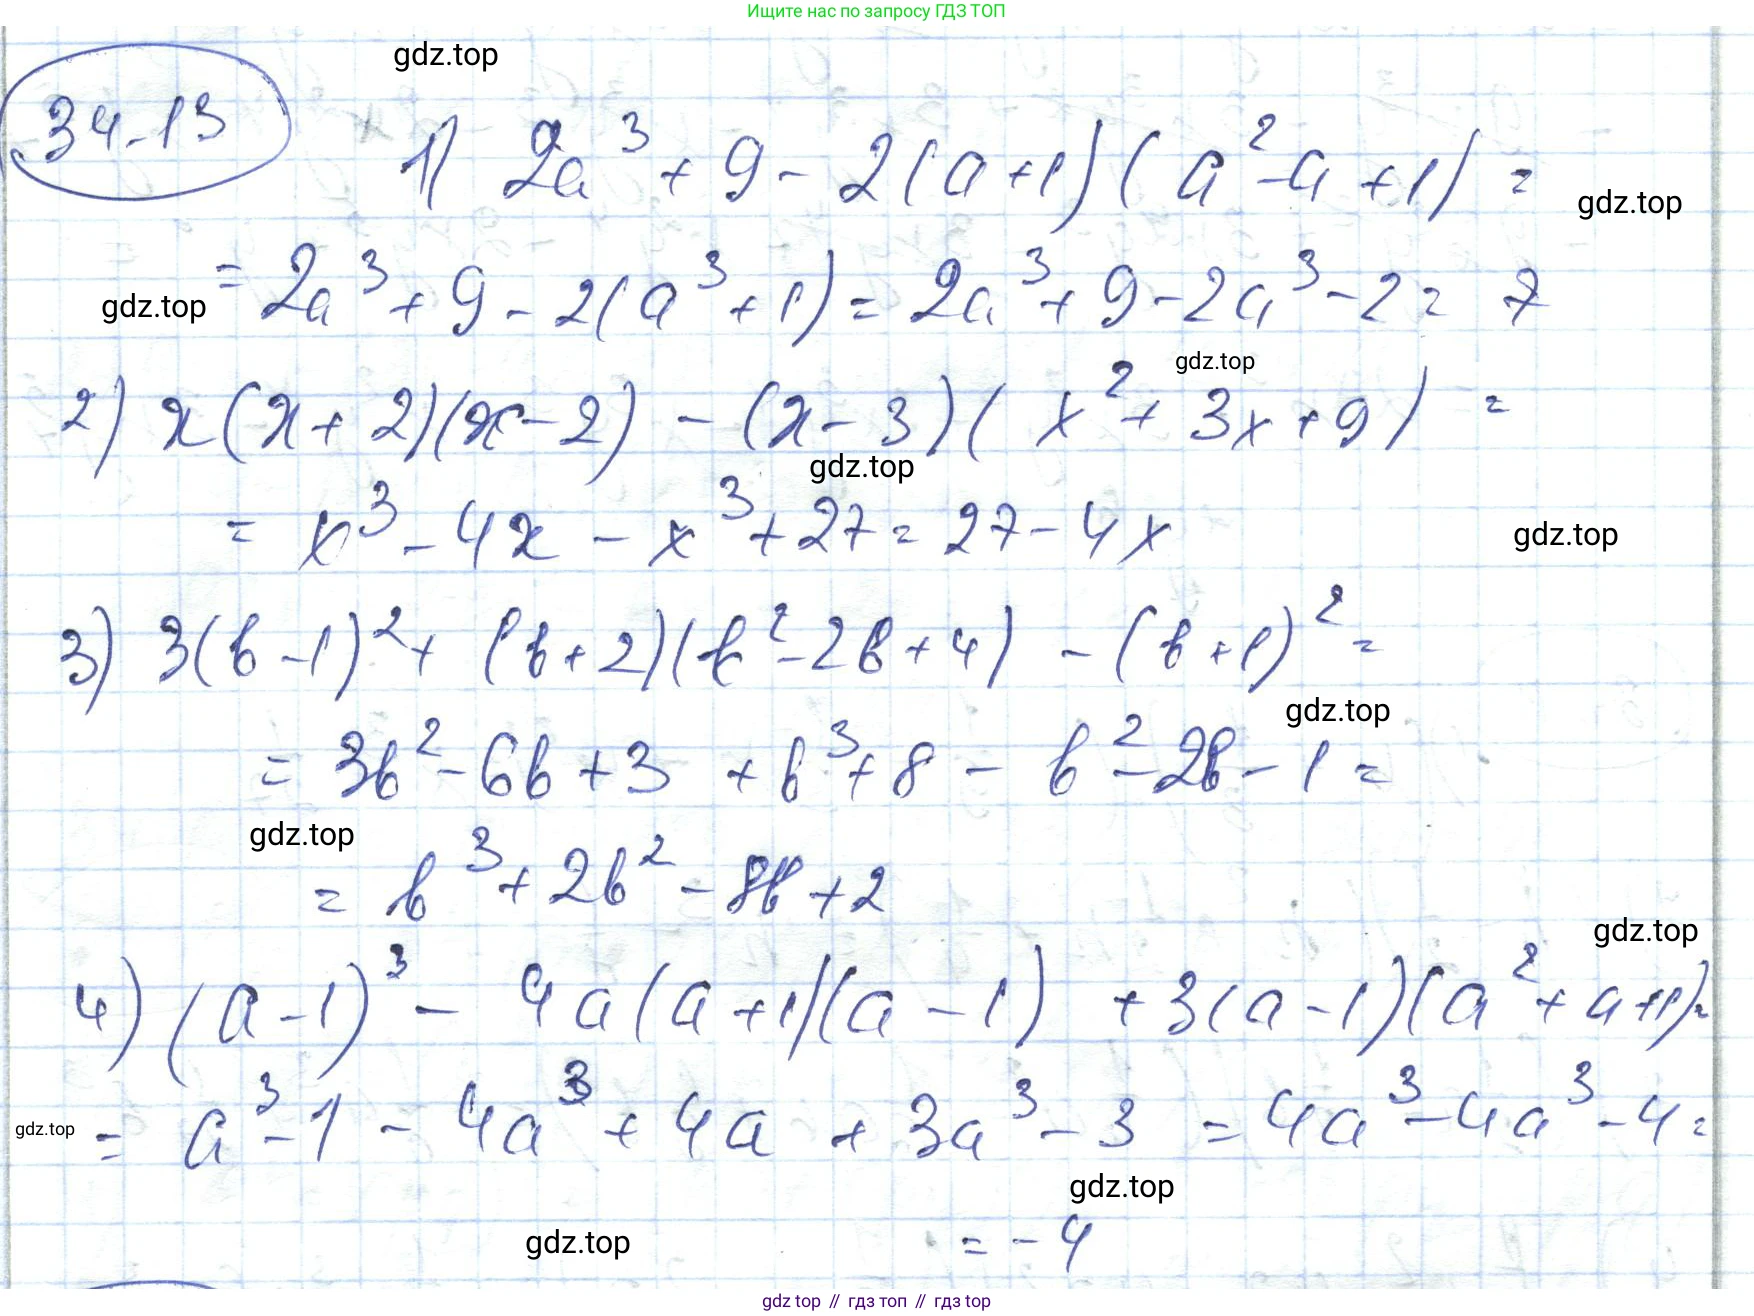 Ищите нас по запросу ГДЗ ТОП
gdz.top
34.13
1) 2a³ + 9 - 2(a+1)(a² - a + 1) =
gdz.top
= 2a³ + 9 - 2(a³ + 1) = 2a³ + 9 - 2a³ - 2 = 7
gdz.top
gdz.top
2) x(x + 2)(x - 2) - (x - 3)(x² + 3x + 9) =
gdz.top
= x³ - 4x - x³ + 27 = 27 - 4x
gdz.top
3) 3(b - 1)² + (b + 2)(b² - 2b + 4) - (b + 1)² =
gdz.top
= 3b² - 6b + 3 + b³ + 8 - b² - 2b - 1 =
gdz.top
= b³ + 2b² - 8b + 2
gdz.top
4) (a - 1)³ - 4a(a + 1)(a - 1) + 3(a - 1)(a² + a + 1) =
gdz.top
= a³ - 1 - 4a³ + 4a + 3a³ - 3 = 4a³ - 4a³ - 4 =
gdz.top
gdz.top
= -4
gdz top // гдз топ // гдз top